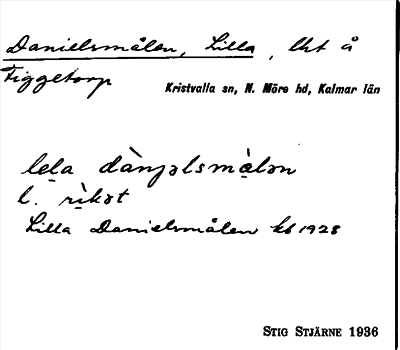 Danielsmålen, Lilla, lht å
Figgetorp
Kristvalla sn, N. Möre hd, Kalmar län
lela dànjəlsmàlən
l. rìkət
Lilla Danielsmålen kb 1928
STIG STJÄRNE 1936